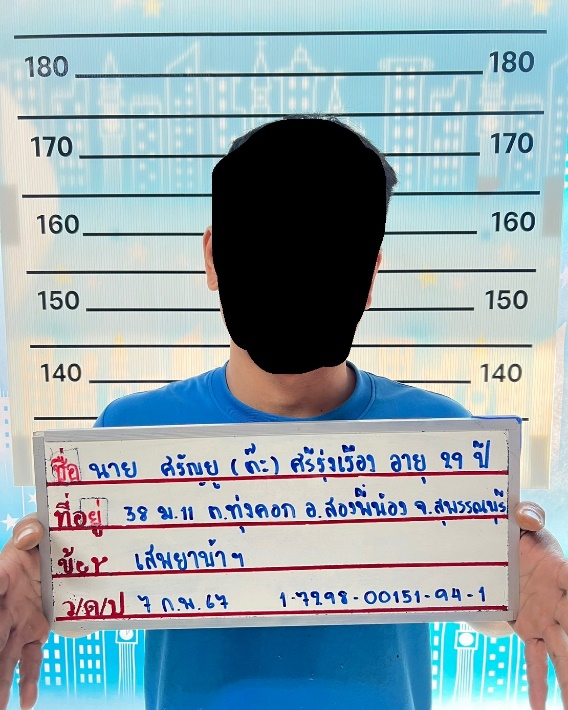 180 180
170 170
160 160
150 150
140 140
ชื่อ นาย ศรัณยู (ต๊ะ) ศรีรุ่งเรือง อายุ 29 ปี
ที่อยู่ 38 ม.11 ต.ทุ่งคอก อ.สองพี่น้อง จ.สุพรรณบุรี
ข้อหา เสพยาบ้าฯ
ว/ด/ป 7 ก.พ. 67 1-7298-00151-94-1